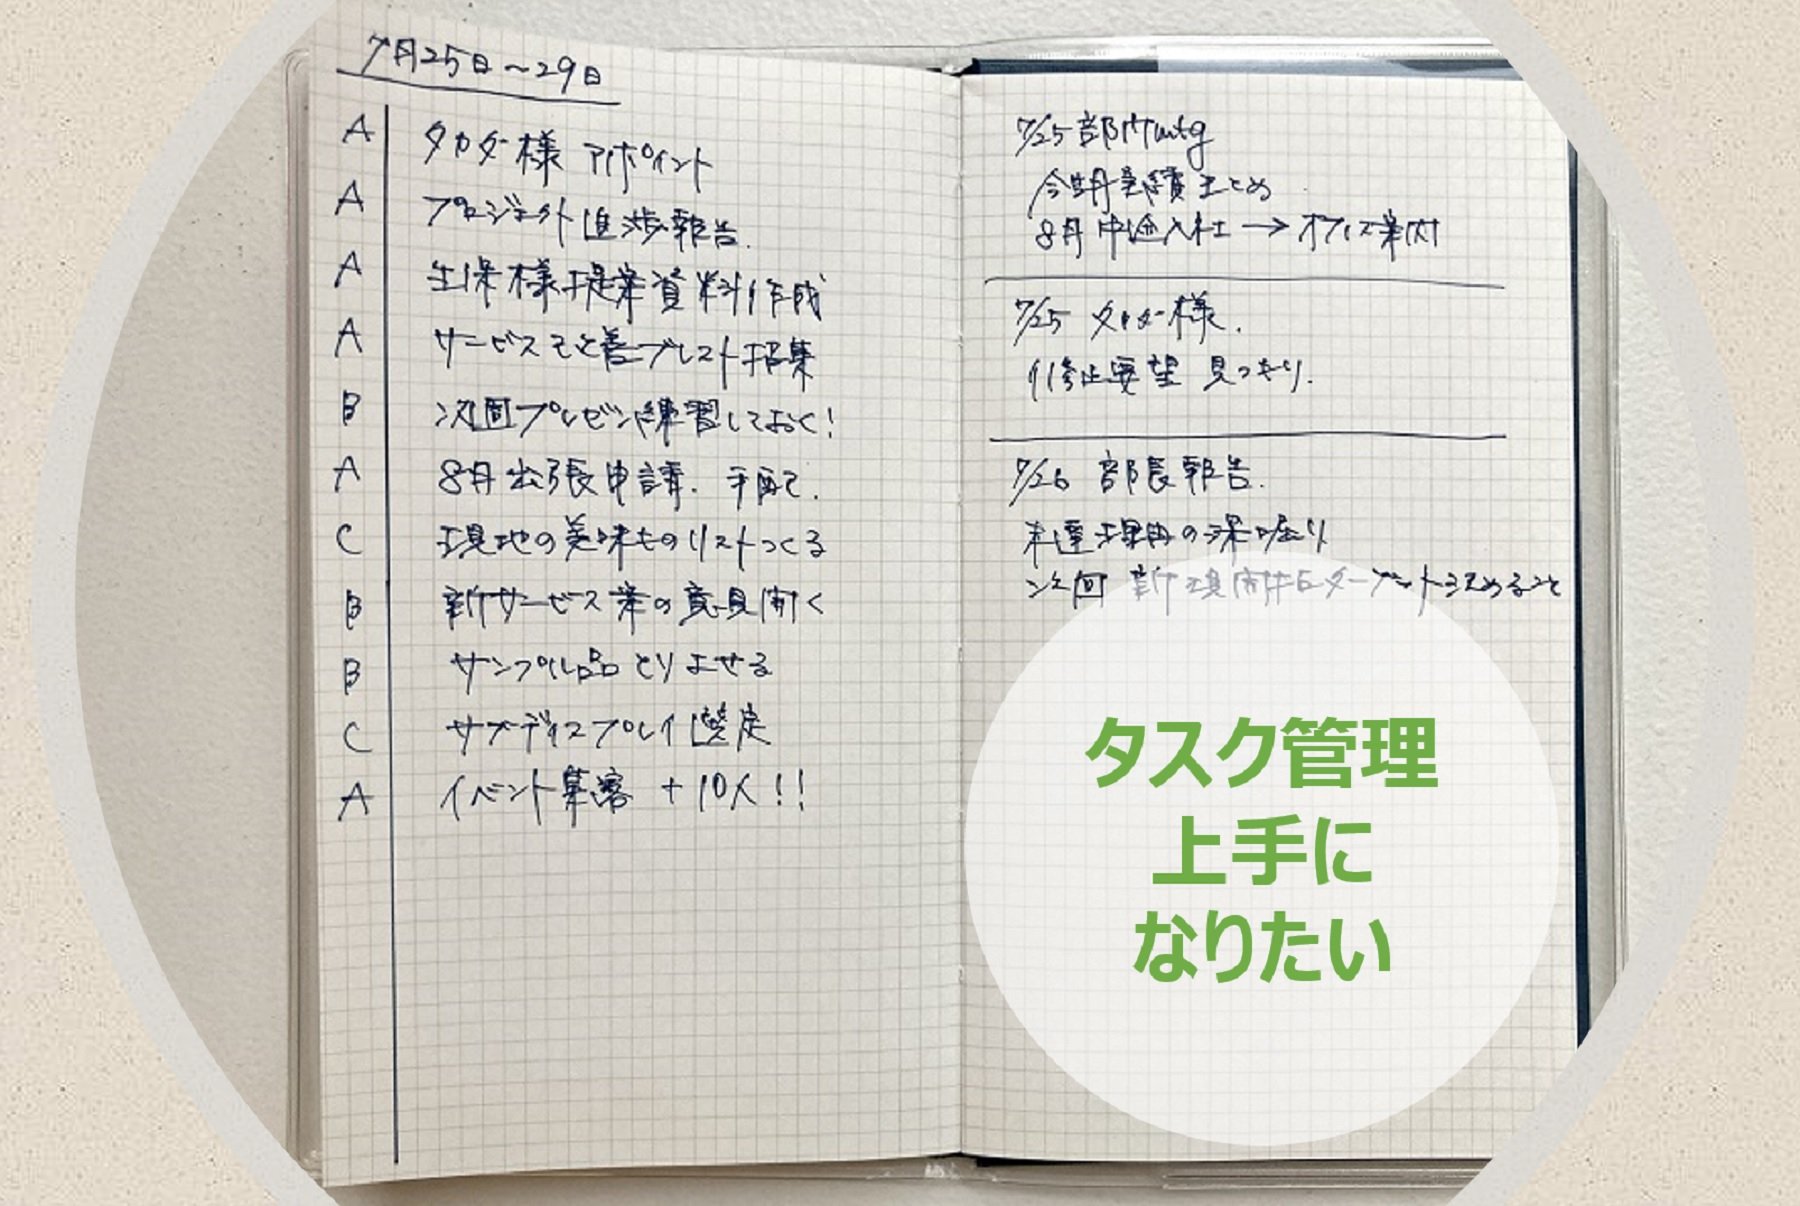 7月25日～29日
A タカダ様 アポイント
A プロジェクト進捗報告.
A 生保様提案資料作成
A サービス改善ブレスト招集
B 次回プレゼン練習しておく!
A 8月出張申請. 手配.
C 現地の美味ものリストつくる
B 新サービス案の意見聞く
B サンプル品とりよせる
C サブディスプレイ選定
A イベント集客 +10人!!
7/25 部内mtg
今期業績まとめ
8月中途入社 → オフィス案内
7/25 タカダ様.
修正要望 見つもり.
7/26 部長報告.
未達理由の深堀り
次回 新規開拓ターゲット決めること
タスク管理
上手に
なりたい